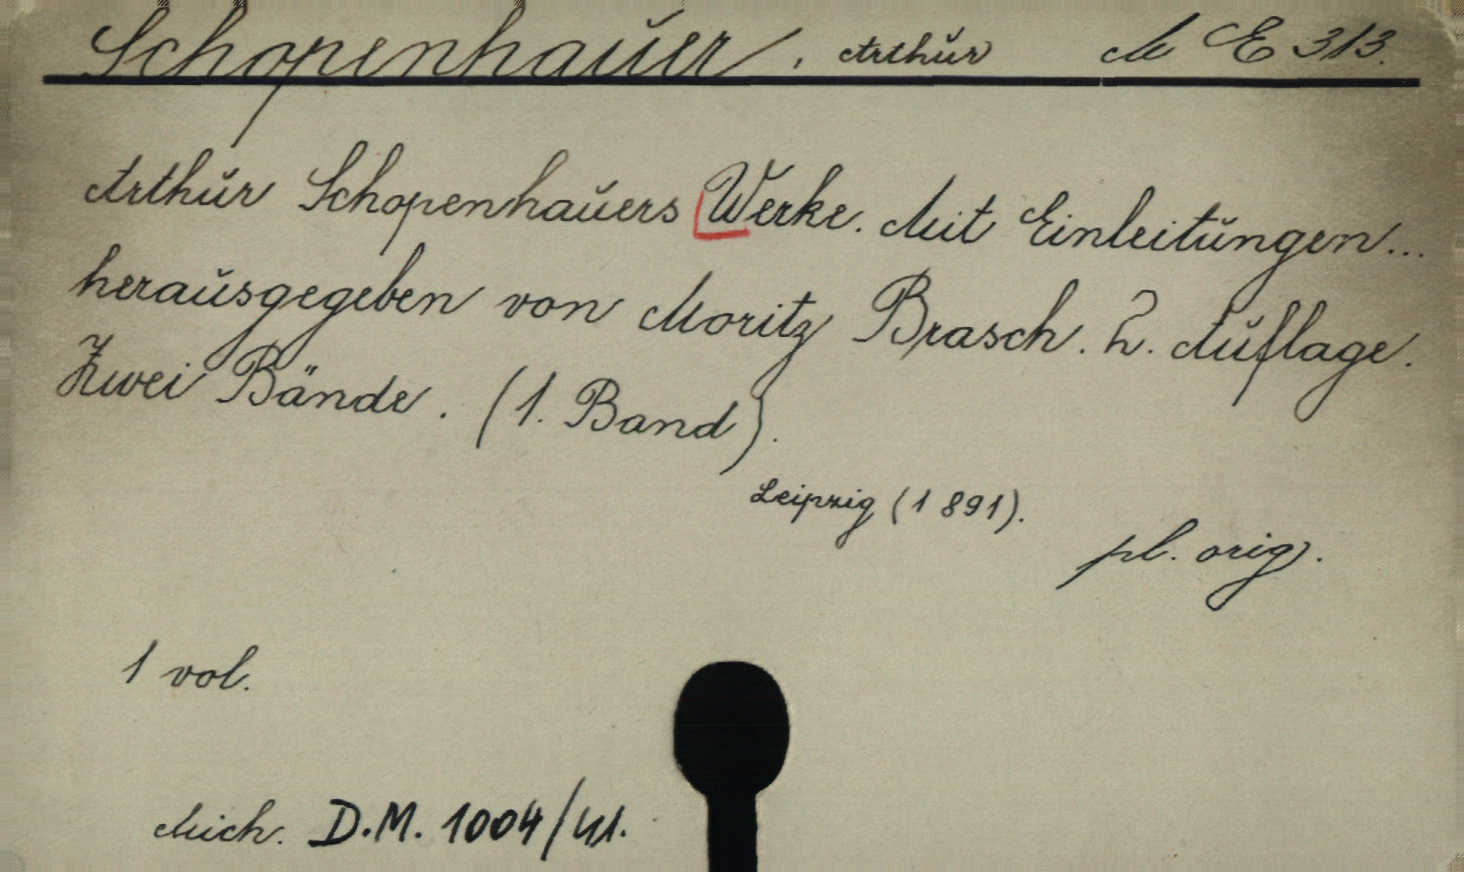 Schopenhauer, Arthur M E 313.
Arthur Schopenhauers Werke. Mit Einleitungen...
herausgegeben von Moritz Brasch. 2. Auflage.
Zwei Bände. (1. Band).
Leipzig (1891).
pl. orig.
1 vol.
Mich. D.M. 1004/41.